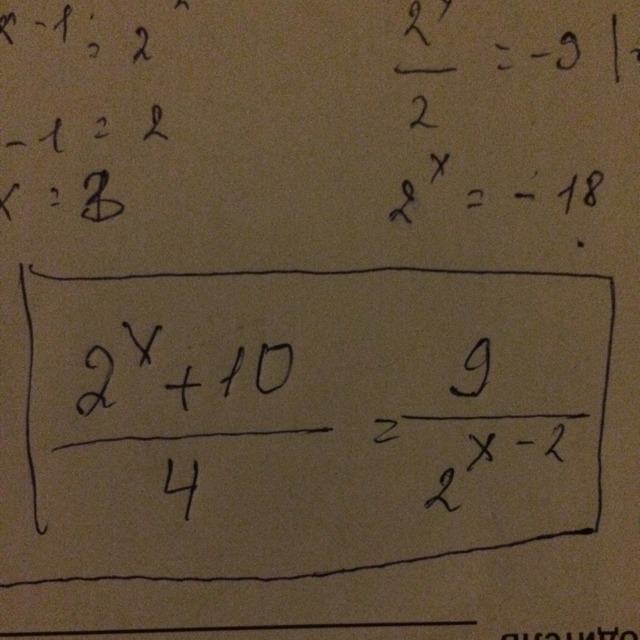 x-1 = 2
-1 = 2
x = 3
2^x / 2 = -9 |
2^x = -18
(2^x + 10) / 4 = 9 / 2^(x-2)
одитель